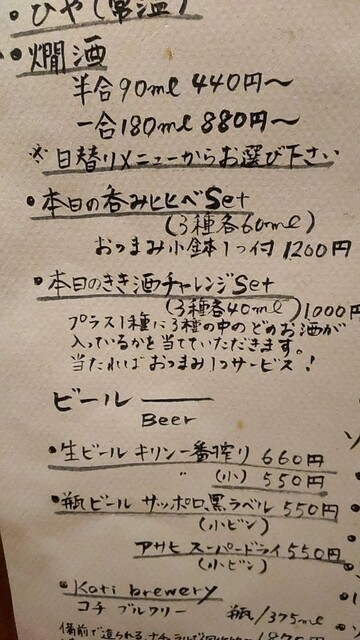 ・ひや(常温)
・燗酒
半合90ml 440円〜
一合180ml 880円〜
※日替りメニューからお選び下さい
・本日の呑みヒヒベSet
(3種各60ml)
おつまみ小鉢1つ付 1200円
・本日のきき酒チャレンジSet
(3種各40ml) 1000円
プラス1種に3種の中のどのお酒が
入っているかを当てていただきます。
当たればおつまみ1つサービス!
ビール
Beer
・生ビール キリン一番搾り 660円
〃 (小) 550円
・瓶ビール サッポロ黒ラベル 550円
(小ビン)
アサヒ スーパードライ 550円
(小ビン)
・Koti brewery
コチ ブルワリー 瓶/375ml
備前で造られる